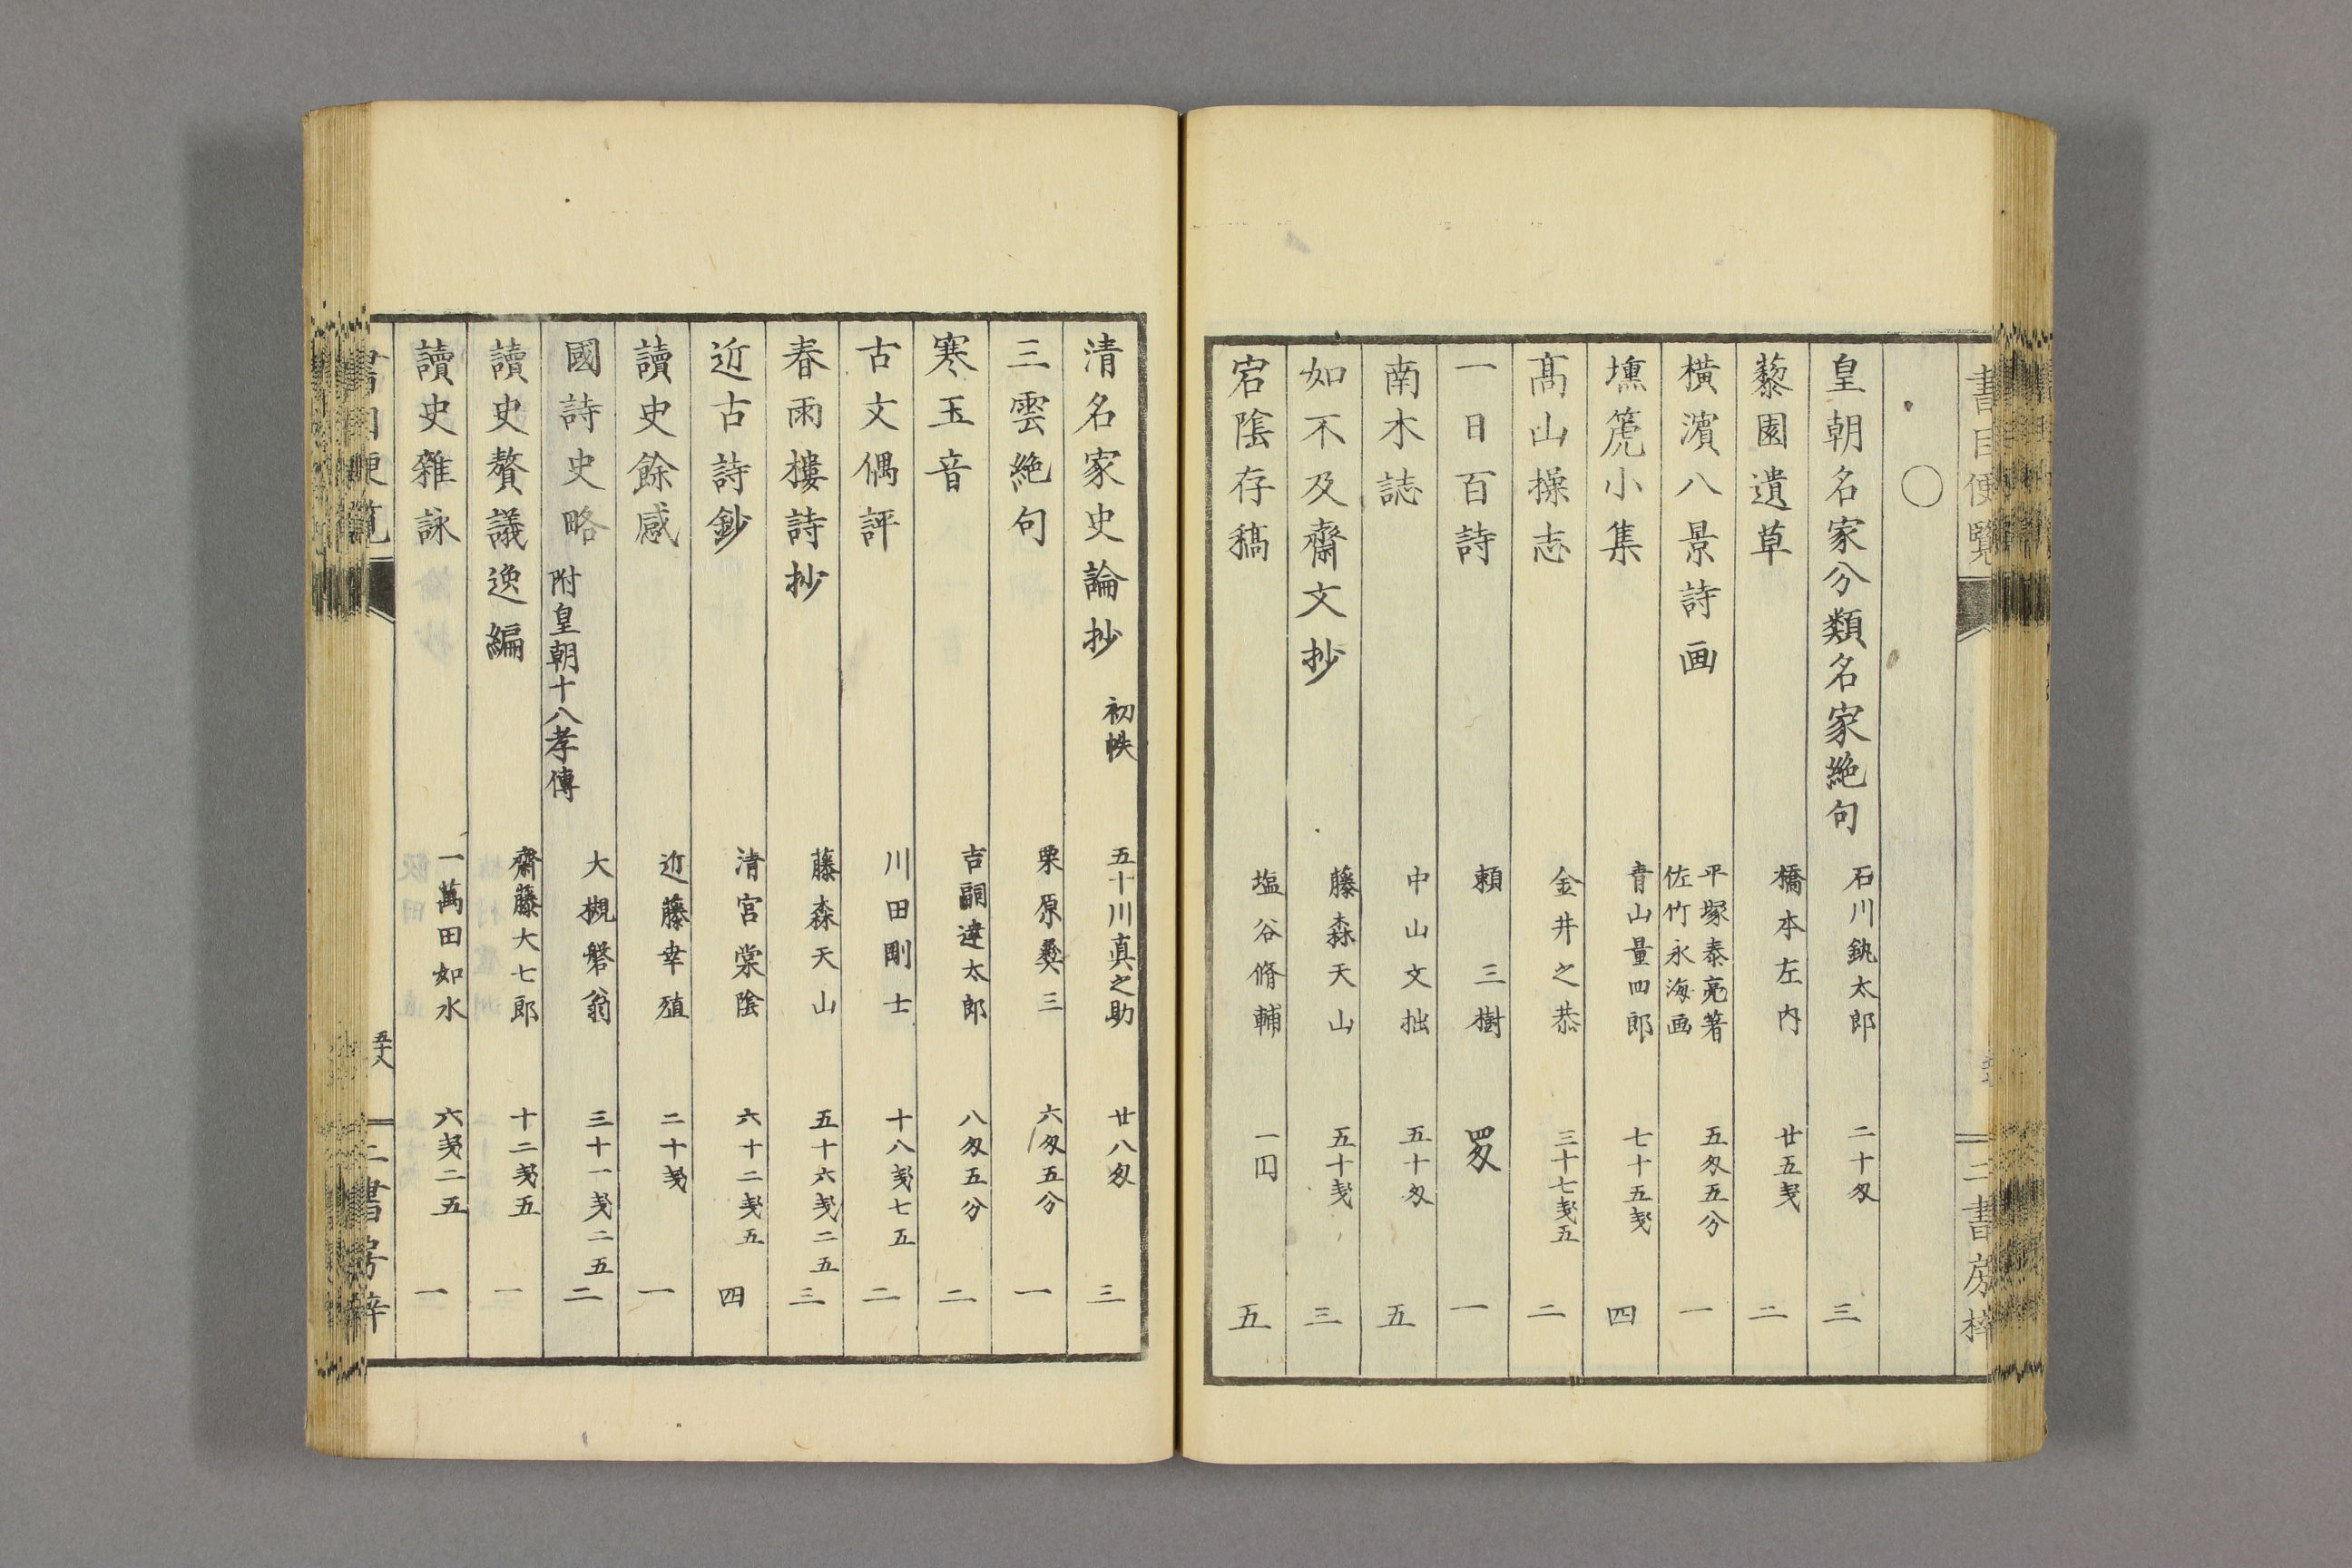 書目便覧
二書房梓
○
皇朝名家分類名家絶句 石川鈗太郎 二十匁 三
藜園遺草 橋本左内 廿五戔 二
橫濵八景詩画 平塚泰亮著 佐竹永海画 五匁五分 一
壎箎小集 青山量四郎 七十五戔 四
髙山操志 金井之恭 三十七戔五 二
一日百詩 頼三樹 四匁 一
南木誌 中山文拙 五十匁 五
如不及齋文抄 藤森天山 五十戔 三
宕陰存稿 塩谷脩輔 一円 五
清名家史論抄 初帙 五十川真之助 廿八匁 三
三雲絶句 栗原彜三 六匁五分 一
寒玉音 吉嗣達太郎 八匁五分 二
古文偶評 川田剛士 十八戔七五 二
春雨樓詩抄 藤森天山 五十六戔二五 三
近古詩鈔 清宮棠陰 六十二戔五 四
讀史餘感 近藤幸殖 二十戔 一
國詩史略 附皇朝十八孝傳 大槻磐翁 三十一戔二五 二
讀史贅議逸編 齋藤大七郎 十二戔五 一
讀史雜詠 一萬田如水 六戔二五 一
五十八